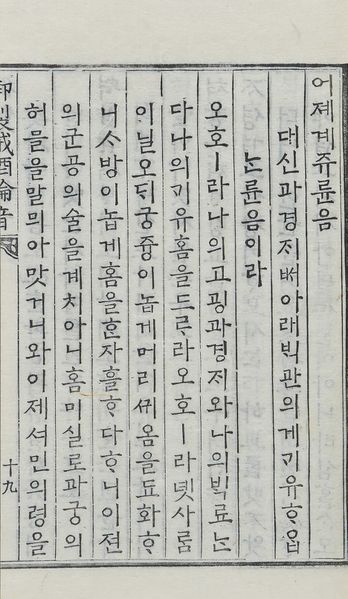 어졔계쥬륜음
대신과경ᄌᆡ아래ᄇᆡᆨ관의게기유ᄒᆞᄋᆞᆸ
ᄂᆞᆫ륜음이라
오호ㅣ라나의고굉과경ᄌᆡ와나의ᄇᆡᆨ료ᄂᆞᆫ
다나의기유홈을드르라오호ㅣ라녯사ᄅᆞᆷ
이닐오ᄃᆡ궁즁이놉게머리옴을됴화ᄒᆞ
니ᄉᆞ방이놉게홈을ᄒᆞᆫ자흘ᄒᆞ다ᄒᆞ니이젼
의군공의술을계치아니홈미실로과궁의
허믈을말믜아맛거니와이제셔민의령을
御製戒酒綸音
十九